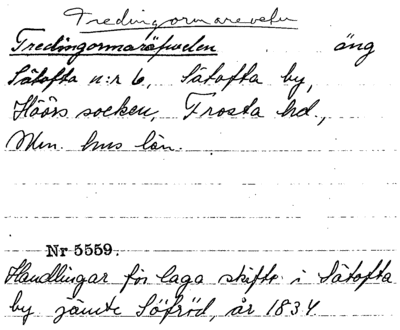 Tredingormarevetur
Tredingormaräfveden äng
Såtofta n:r 6, Såtofta by,
Höörs socken, Frosta hd.,
Mlm. hus län.
Nr 5559.
Handlingar för laga skifte i Såtofta
by jämte Söfröd, år 1834